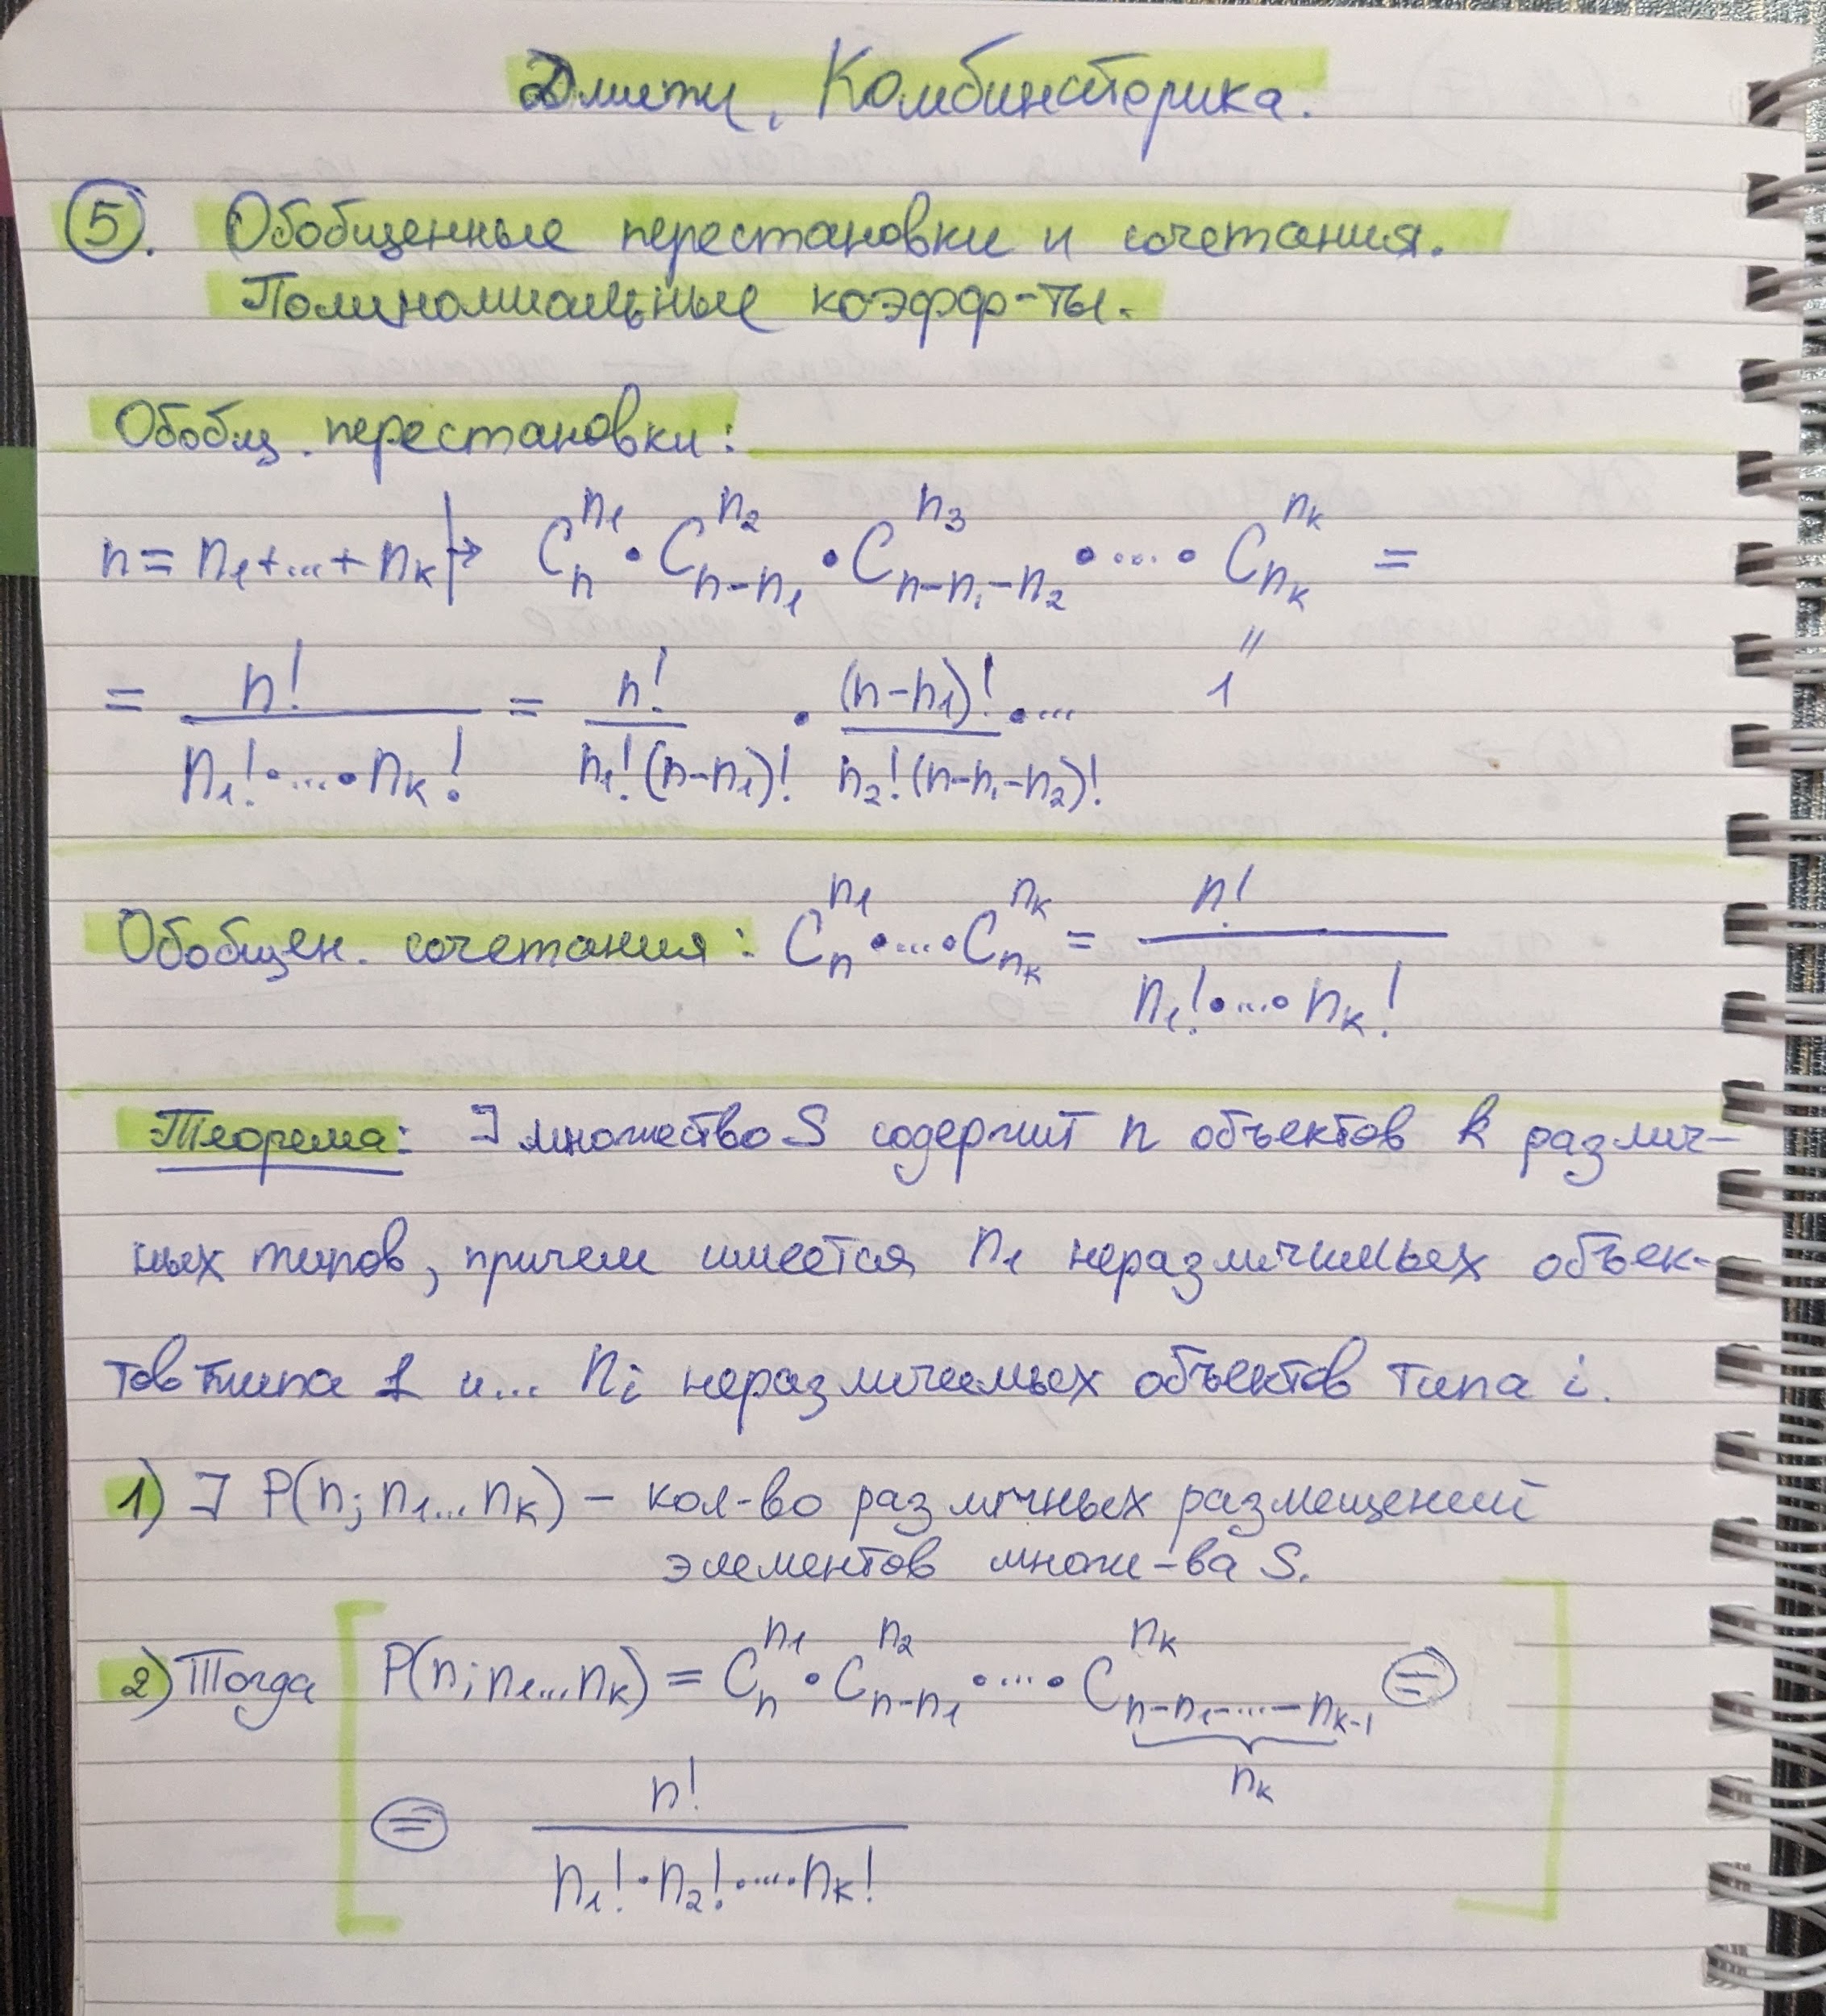 Дмити. Комбинаторика.
5. Обобщенные перестановки и сочетания.
Полиномиальные коэфф-ты.
Обобщ. перестановки:
n = n₁+...+nₖ |→ Cₙ^n₁ · Cₙ₋ₙ₁^n₂ · Cₙ₋ₙ₁₋ₙ₂^n₃ · .... · Cₙₖ^nₖ =
= n! / (n₁!·...·nₖ!) = n! / (n₁!(n-n₁)!) · (n-n₁)! / (n₂!(n-n₁-n₂)!) · ... " 1
Обобщен. сочетания: Cₙ^n₁ · ... · Cₙₖ^nₖ = n! / (n₁!·...·nₖ!)
Теорема: ] множество S содержит n объектов k различ-
ных типов, причем имеется n₁ неразличимых объек-
тов типа 1 и... nᵢ неразличимых объектов типа i.
1) ] P(n; n₁...nₖ) – кол-во различных размещений
элементов множ-ва S.
2) Тогда [ P(n; n₁...nₖ) = Cₙ^n₁ · Cₙ₋ₙ₁^n₂ · .... · C_(n-n₁-...-nₖ₋₁)^nₖ =
nₖ
= n! / (n₁!·n₂!·....·nₖ!) ]